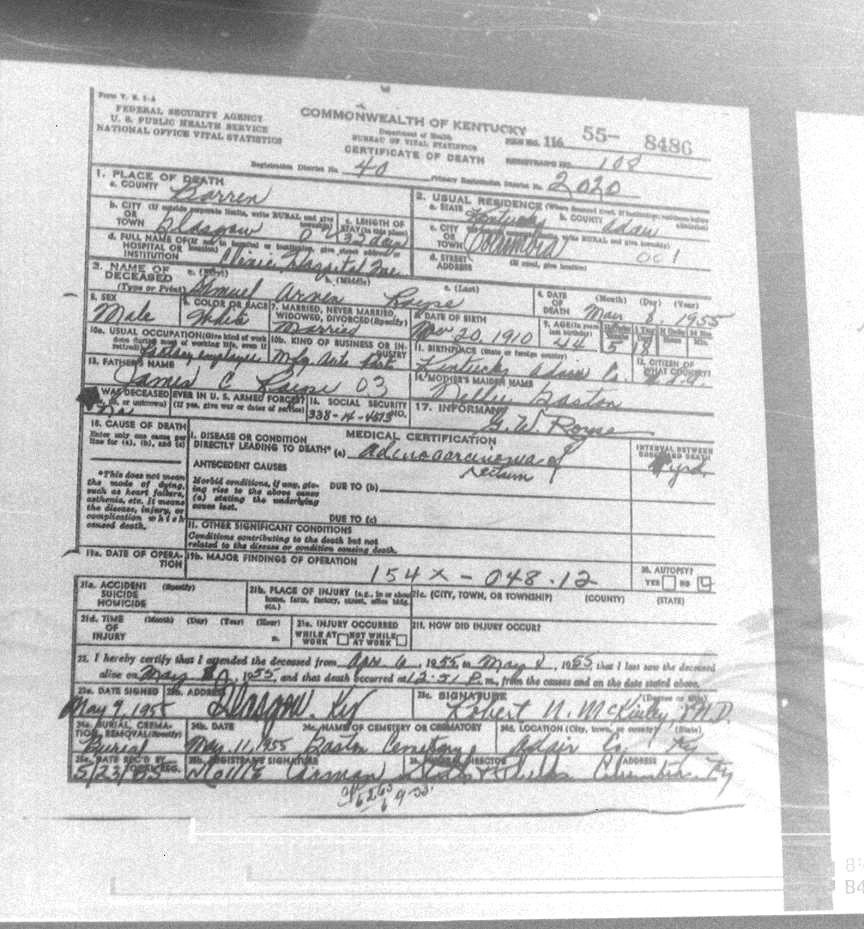 Form V. S. 1-A
FEDERAL SECURITY AGENCY
U. S. PUBLIC HEALTH SERVICE
NATIONAL OFFICE VITAL STATISTICS
COMMONWEALTH OF KENTUCKY
Department of Health
BUREAU OF VITAL STATISTICS
CERTIFICATE OF DEATH
FILE NO. 116 55- 8486
REGISTRAR'S NO. 108
Registration District No. 40 Primary Registration District No. 2020
1. PLACE OF DEATH
a. COUNTY Barren
b. CITY (If outside corporate limits, write RURAL and give township)
OR
TOWN Glasgow
c. LENGTH OF
STAY (in this place)
32 days
d. FULL NAME OF (If not in hospital or institution, give street address or location)
HOSPITAL OR
INSTITUTION Hospital Inc
2. USUAL RESIDENCE (Where deceased lived. If institution: residence before admission)
a. STATE Kentucky b. COUNTY Adair
c. CITY (If outside corporate limits, write RURAL and give township)
OR
TOWN Columbia 001
d. STREET (If rural, give location)
ADDRESS
3. NAME OF a. (First) b. (Middle) c. (Last)
DECEASED
(Type or Print) Royse
4. DATE (Month) (Day) (Year)
OF
DEATH May 8, 1955
5. SEX
Male
6. COLOR OR RACE
White
7. MARRIED, NEVER MARRIED,
WIDOWED, DIVORCED (Specify)
Married
8. DATE OF BIRTH
Nov 20, 1910
9. AGE (In years last birthday)
44 5 18
10a. USUAL OCCUPATION (Give kind of work done during most of working life, even if retired)
Factory employee
10b. KIND OF BUSINESS OR INDUSTRY
Mfg. Auto Part
11. BIRTHPLACE (State or foreign country)
Kentucky Adair Co.
12. CITIZEN OF
WHAT COUNTRY?
U.S.A.
13. FATHER'S NAME
James C Royse 03
14. MOTHER'S MAIDEN NAME
Nellie Gaston
15. WAS DECEASED EVER IN U. S. ARMED FORCES?
(Yes, no, or unknown) (If yes, give war or dates of service)
No
16. SOCIAL SECURITY NO.
17. INFORMANT
G. W. Royse
18. CAUSE OF DEATH
Enter only one cause per
line for (a), (b), and (c)
MEDICAL CERTIFICATION
INTERVAL BETWEEN
ONSET AND DEATH
I. DISEASE OR CONDITION
DIRECTLY LEADING TO DEATH* (a) adenocarcinoma of
rectum
yrs.
*This does not mean
the mode of dying,
such as heart failure,
asthenia, etc. It means
the disease, injury, or
complication which
caused death.
ANTECEDENT CAUSES
Morbid conditions, if any, giving
rise to the above cause
(a) stating the underlying
cause last.
DUE TO (b)
DUE TO (c)
II. OTHER SIGNIFICANT CONDITIONS
Conditions contributing to the death but not
related to the disease or condition causing death.
19a. DATE OF OPERATION
19b. MAJOR FINDINGS OF OPERATION
154X-048-12
20. AUTOPSY?
YES NO
21a. ACCIDENT (Specify)
SUICIDE
HOMICIDE
21b. PLACE OF INJURY (e.g., in or about
home, farm, factory, street, office bldg.,
etc.)
21c. (CITY, TOWN, OR TOWNSHIP) (COUNTY) (STATE)
21d. TIME (Month) (Day) (Year) (Hour)
OF
INJURY m.
21e. INJURY OCCURRED
WHILE AT WORK NOT WHILE AT WORK
21f. HOW DID INJURY OCCUR?
22. I hereby certify that I attended the deceased from Apr 6, 1955 to May 8, 1955, that I last saw the deceased
alive on May 8, 1955, and that death occurred at 12:51 P. m., from the causes and on the date stated above.
23a. DATE SIGNED
May 9, 1955
23b. ADDRESS
Glasgow, Ky
23c. SIGNATURE (Degree or title)
Robert N. McKinley, M.D.
24a. BURIAL, CREMATION, REMOVAL (Specify)
Burial
24b. DATE
May, 11, 1955
24c. NAME OF CEMETERY OR CREMATORY
Gaston Cemetery
24d. LOCATION (City, town, or county) (State)
Adair Co. Ky
25a. DATE REC'D BY LOCAL REG.
5/23/55
25b. REGISTRAR'S SIGNATURE
26. FUNERAL DIRECTOR ADDRESS
Columbia, Ky